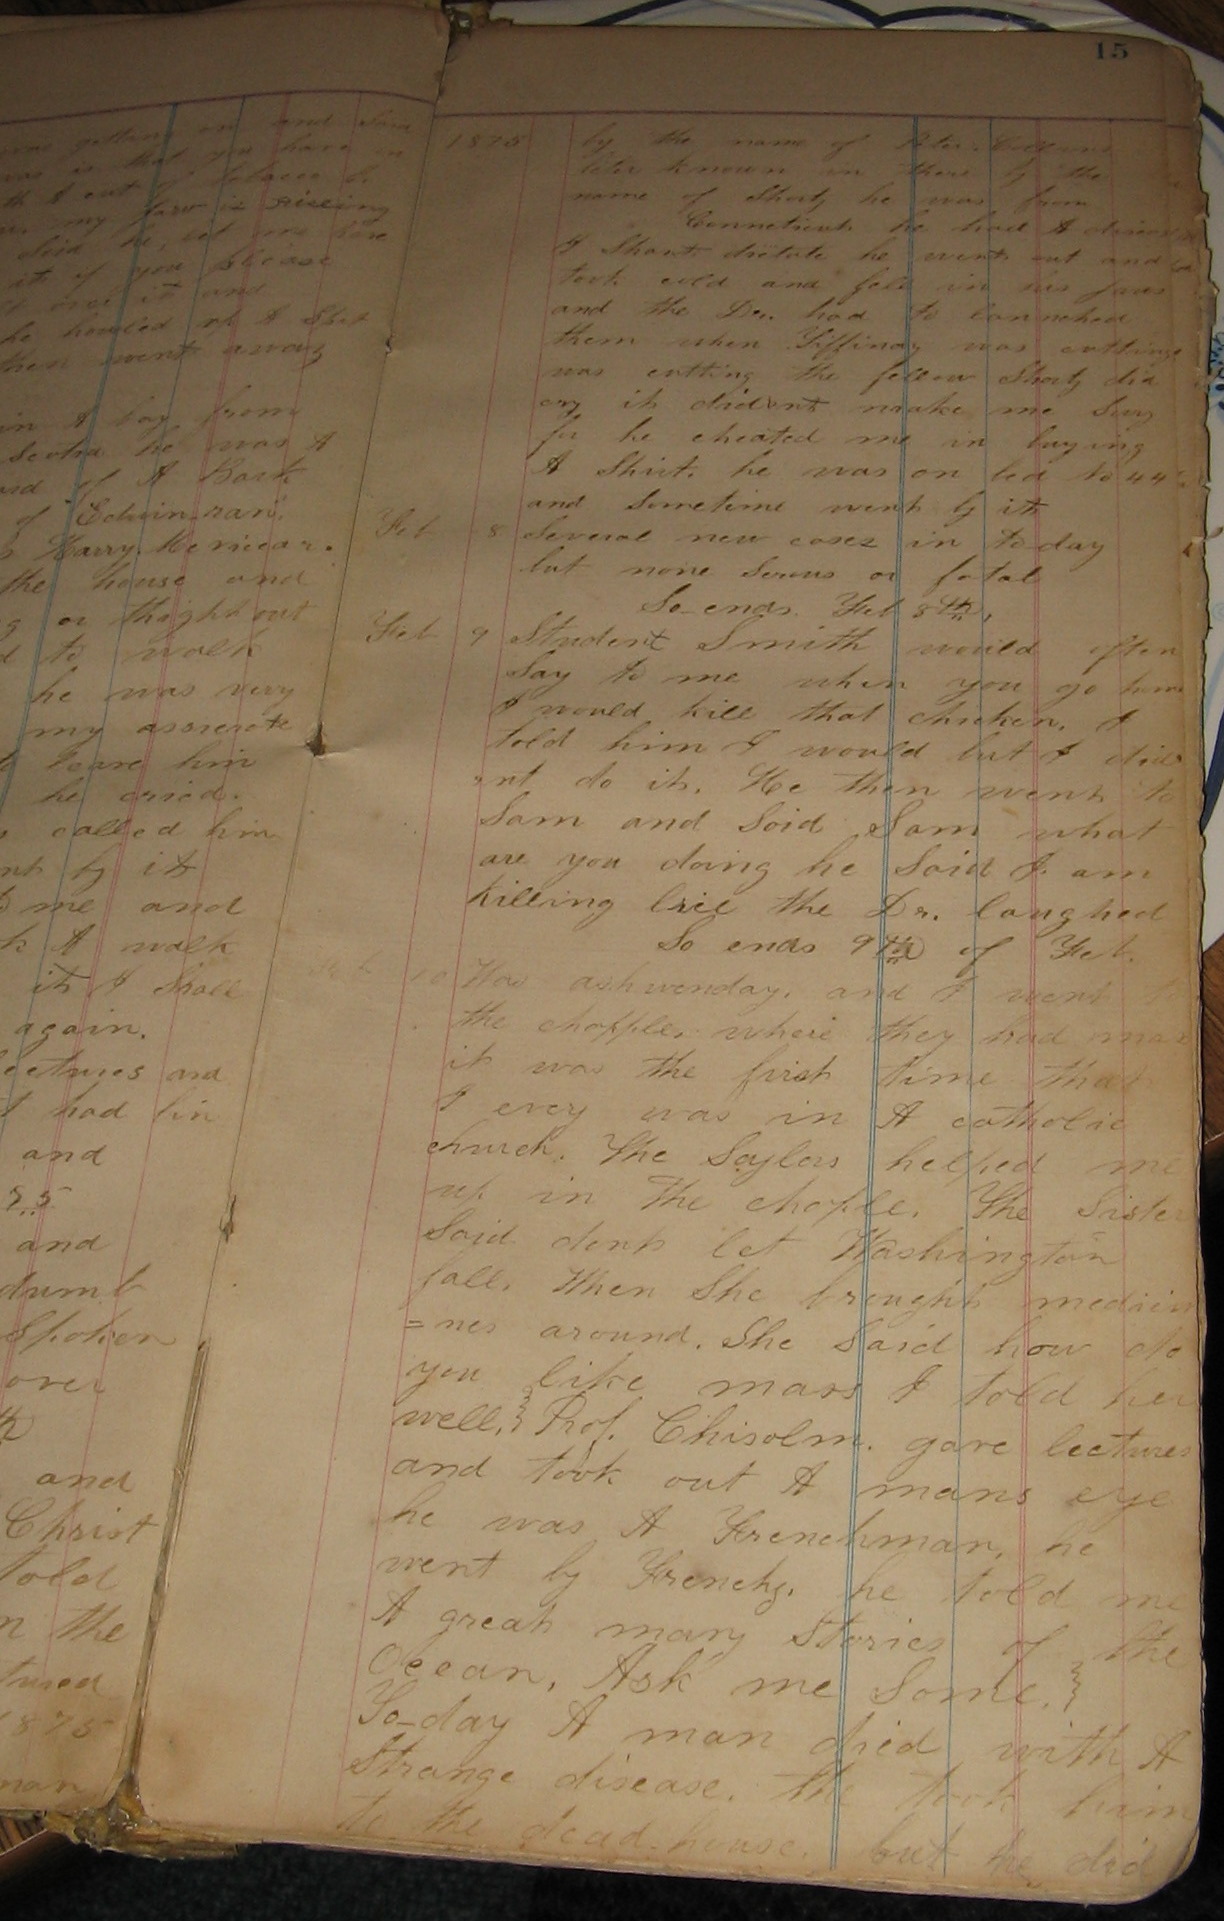 was getting on and
was is that you have
A cut of tobacco
my jaw is rising
Said he, let me have
it if you please
it over it and
he howled up A Spit
then went away
in A boy from
Scotia he was A
of A Bark
of "Edwin
Harry
the house and
or thigh out
to walk
he was very
my associate
to leave him
he cried.
called him
by it
me and
A walk
it I Shall
again.
lectures and
had bin
and
and
dumb
Spoken
over
and
Christ
told
the
1875
man
15
1875 by the name of Peter
better known in there by the
name of Shorty he was from
Connecticut he had A
I Shant dictate he went out and
took cold and fell in his jaws
and the Dr. had to
them when Tiffinay was cutting
was cutting the fellow Shorty did
cry it did'nt make me
for he cheated me in buying
A Shirt. he was on bed No 44
and Sometime went by it
Feb 8 Several new cases in to day
but none Serous or fatal
So-ends. Feb 8th,
Feb 9 Student Smith would often
Say to me when you go home
I would kill that chicken. I
told him I would but I did
"nt do it. He then went to
Sam and Said Sam what
are you doing he Said I am
killing lice the Dr. laughed
So ends 9th of Feb.
10 Was ashwenday. and I went to
the chapple. where they had mas
it was the first time that
I evey was in A catholic
church. The Saylors helped me
up in the chaple. The Sister
Said dont let Washington
fall. When She brought medicin
=nes around. She Said how do
you like mass I told her
well.} Prof. Chisolm. gave lectures
and took out A mans eye
he was A Frenchman, he
went by Frenchy. he told me
A great many Stories of the
Ocean, Ask me Some.}
To-day A man died with A
Strange disease. the took him
to the dead-house. but he did